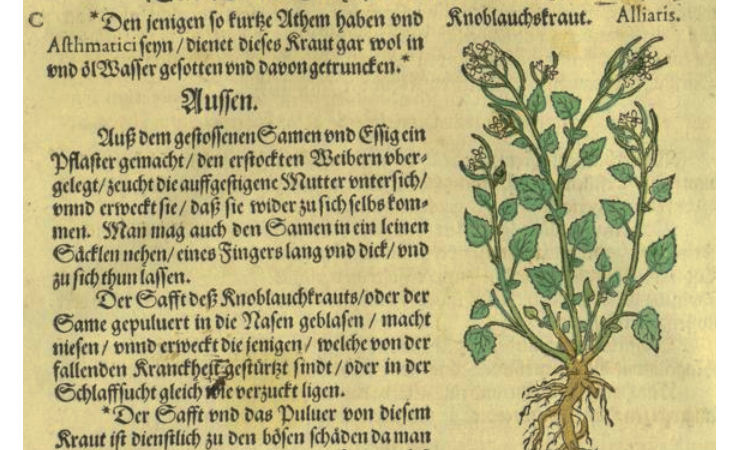 C *Den jenigen so kurtze Athem haben vnd
Asthmatici seyn / dienet dieses Kraut gar wol in
vnd öl Wasser gesotten vnd davon getruncken.*
Aussen.
Auß dem gestossenen Samen vnd Essig ein
Pflaster gemacht / den erstockten Weibern vber-
gelegt / zeucht die auffgestigene Mutter vntersich /
vnnd erweckt sie / daß sie wider zu sich selbs kom-
men. Man mag auch den Samen in ein leinen
Säcklen nehen / eines Fingers lang vnd dick / vnd
zu sich thun lassen.
Der Safft deß Knoblauchkrauts / oder der
Same gepuluert in die Nasen geblasen / macht
niesen / vnnd erweckt die jenigen / welche von der
fallenden Kranckheit gestürtzt sindt / oder in der
Schlaffsucht gleich wie verzuckt ligen.
*Der Safft vnd das Puluer von diesem
Kraut ist dienstlich zu den bösen schäden da man
Knoblauchskraut. Alliaris.